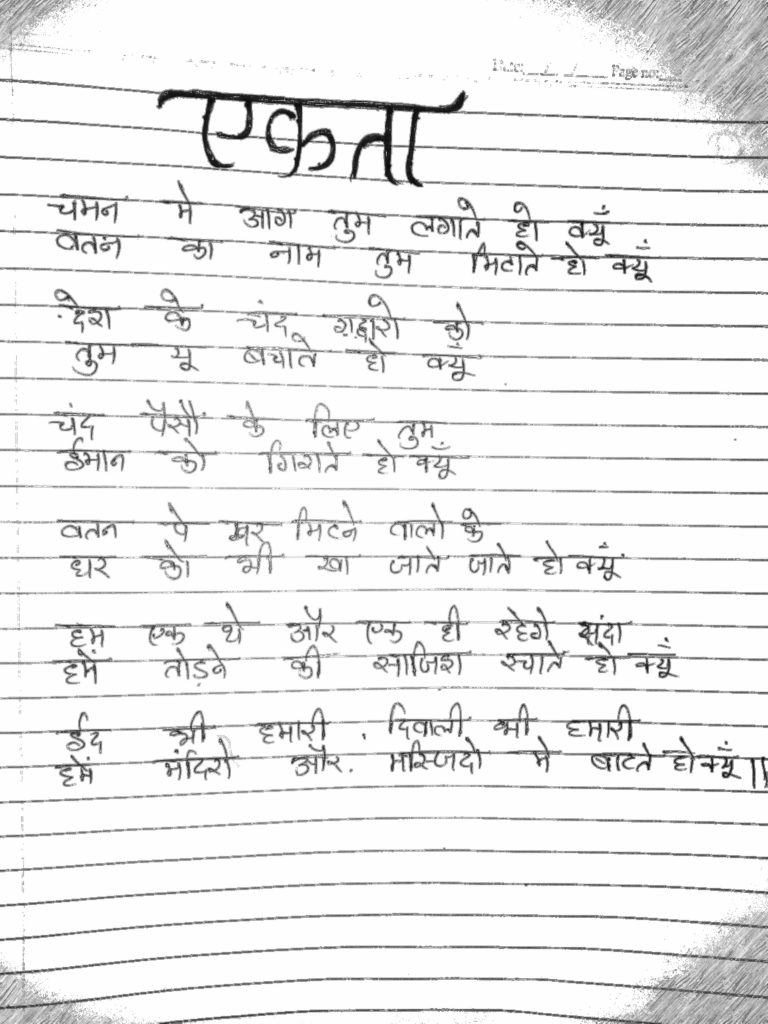 Date:__/__/__ Page no:___
एकता
चमन मे आग तुम लगाते हो क्यूँ
वतन का नाम तुम मिटाते हो क्यूँ
देश के चंद गद्दारो को
तुम यू बचाते हो क्यूँ
चंद पैसौं के लिए तुम
ईमान को गिराते हो क्यूँ
वतन पे मर मिटने वालो के
घर को भी खा जाते जाते हो क्यूँ
हम एक थे और एक ही रहेगे संदा
हमें तोड़ने की साजिश रचाते हो क्यूँ
ईद भी हमारी . दिवाली भी हमारी
हमें मंदिरो और. मस्जिदो मे बाटते हो क्यूँ ||